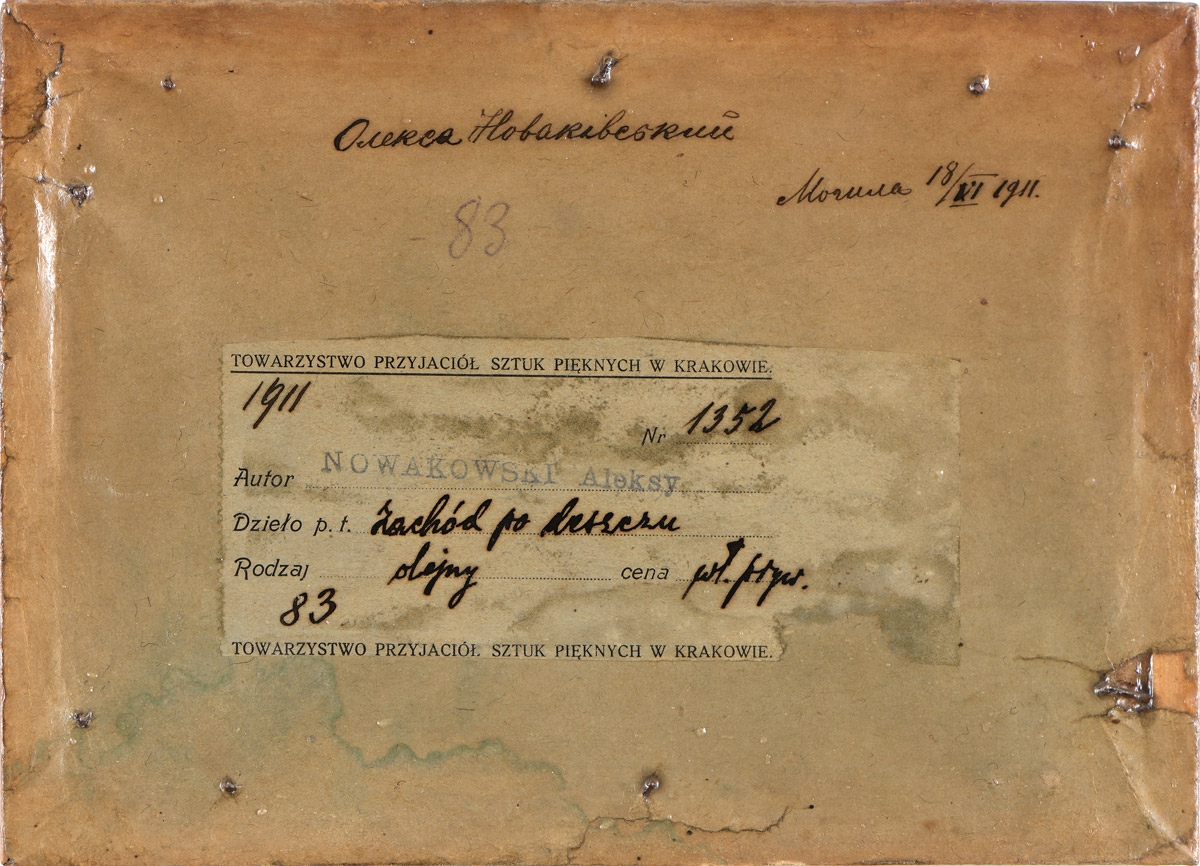 Олекса Новаківський
Могила 18/VI 1911.
83
TOWARZYSTWO PRZYJACIÓŁ SZTUK PIĘKNYCH W KRAKOWIE.
1911
Nr 1352
Autor NOWAKOWSKI Aleksy
Dzieło p. t. Zachód po deszczu
Rodzaj olejny cena wł. pryw.
83
TOWARZYSTWO PRZYJACIÓŁ SZTUK PIĘKNYCH W KRAKOWIE.